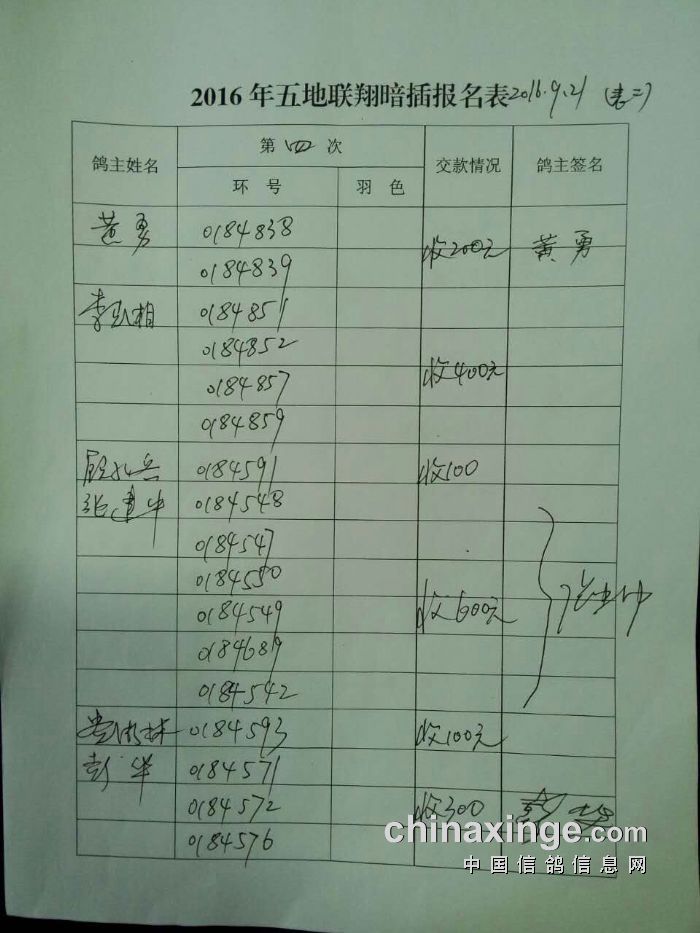 2016年五地联翔暗插报名表2016.9.21 (表二)
鸽主姓名 第四次 交款情况 鸽主签名
环号 羽色
黄勇 0184838 收200元 黄勇
0184839
李 相 0184851
0184852
0184857 收400元
0184859
兵 0184591 收100
张建华 0184548
0184547
0184550
0184549 收600元
0184689
0184542
林 0184593 收100元
彭华 0184571
0184572 收300 彭华
0184576
chinaxinge.com
中国信鸽信息网